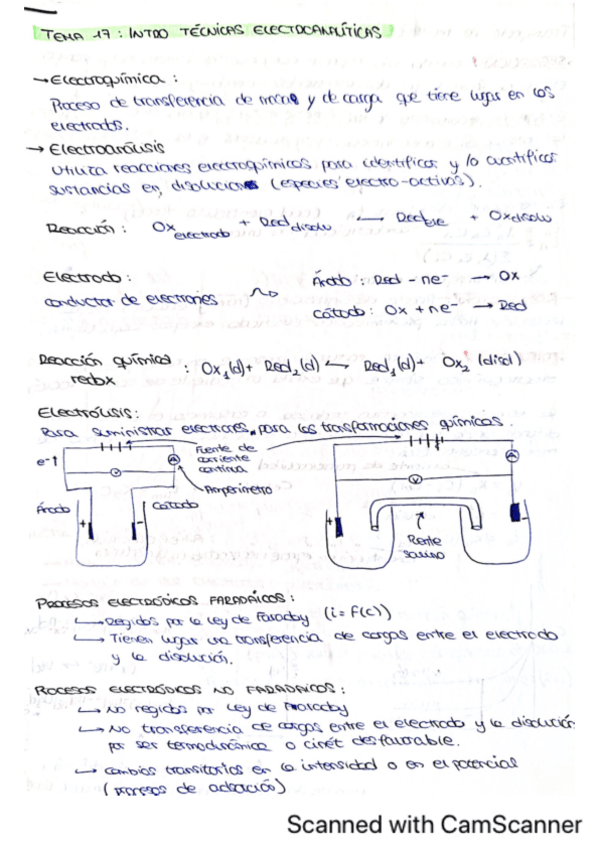 TEMA 17: INTRO TÉCNICAS ELECTROANALÍTICAS
→ Electroquímica :
Proceso de transferencia de masa y de carga que tiene lugar en los
electrodos.
→ Electroanálisis
Utiliza reacciones electroquímicas para identificar y/o cuantificar
sustancias en disolución (especies electro-activas).
Reacción : Ox electrodo + Red disolu ⟷ Red ele + Ox disolu
Electrodo : Ánodo : Red - ne⁻ → Ox
conductor de electrones cátodo : Ox + ne⁻ → Red
Reacción química : Ox₁(d) + Red₂(d) ⟷ Red₁(d) + Ox₂ (disol)
redox
Electrólisis :
Para suministrar electrones, para las transformaciones químicas.
Fuente de
corriente
continua
e-↑
V
A
Amperímetro
Ánodo
Cátodo
+
-
A
V
+
-
Puente
salino
PROCESOS ELECTRÓDICOS FARADAICOS :
↳ Regidos por la ley de Faraday (i = f(c))
↳ Tienen lugar una transferencia de cargas entre el electrodo
y la disolución.
PROCESOS ELECTRÓDICOS NO FARADAICOS :
↳ No regidos por ley de Faraday
↳ No transferencia de cargas entre el electrodo y la disolución
por ser termodinámica o cinét desfavorable.
↳ cambios transitorios en la intensidad o en el potencial
(procesos de adsorción)
Scanned with CamScanner